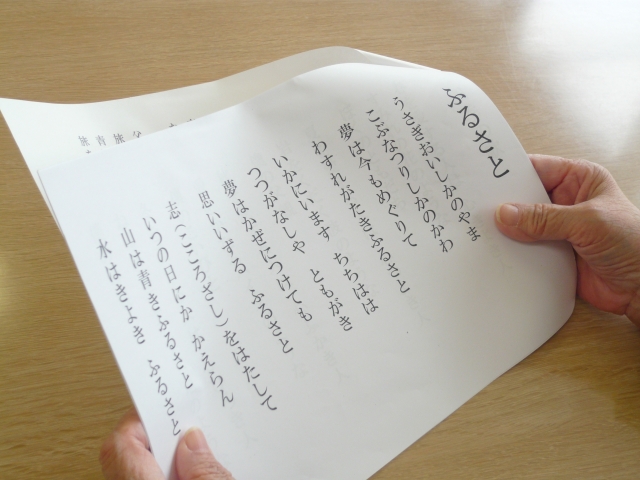 ふるさと
うさぎおいしかのやま
こぶなつりしかのかわ
夢は今もめぐりて
わすれがたきふるさと
いかにいます　ちちはは
つつがなしや　ともがき
夢はかぜにつけても
思いいずる　ふるさと
志(こころざし)をはたして
いつの日にか　かえらん
山は青きふるさと
水はきよき　ふるさと